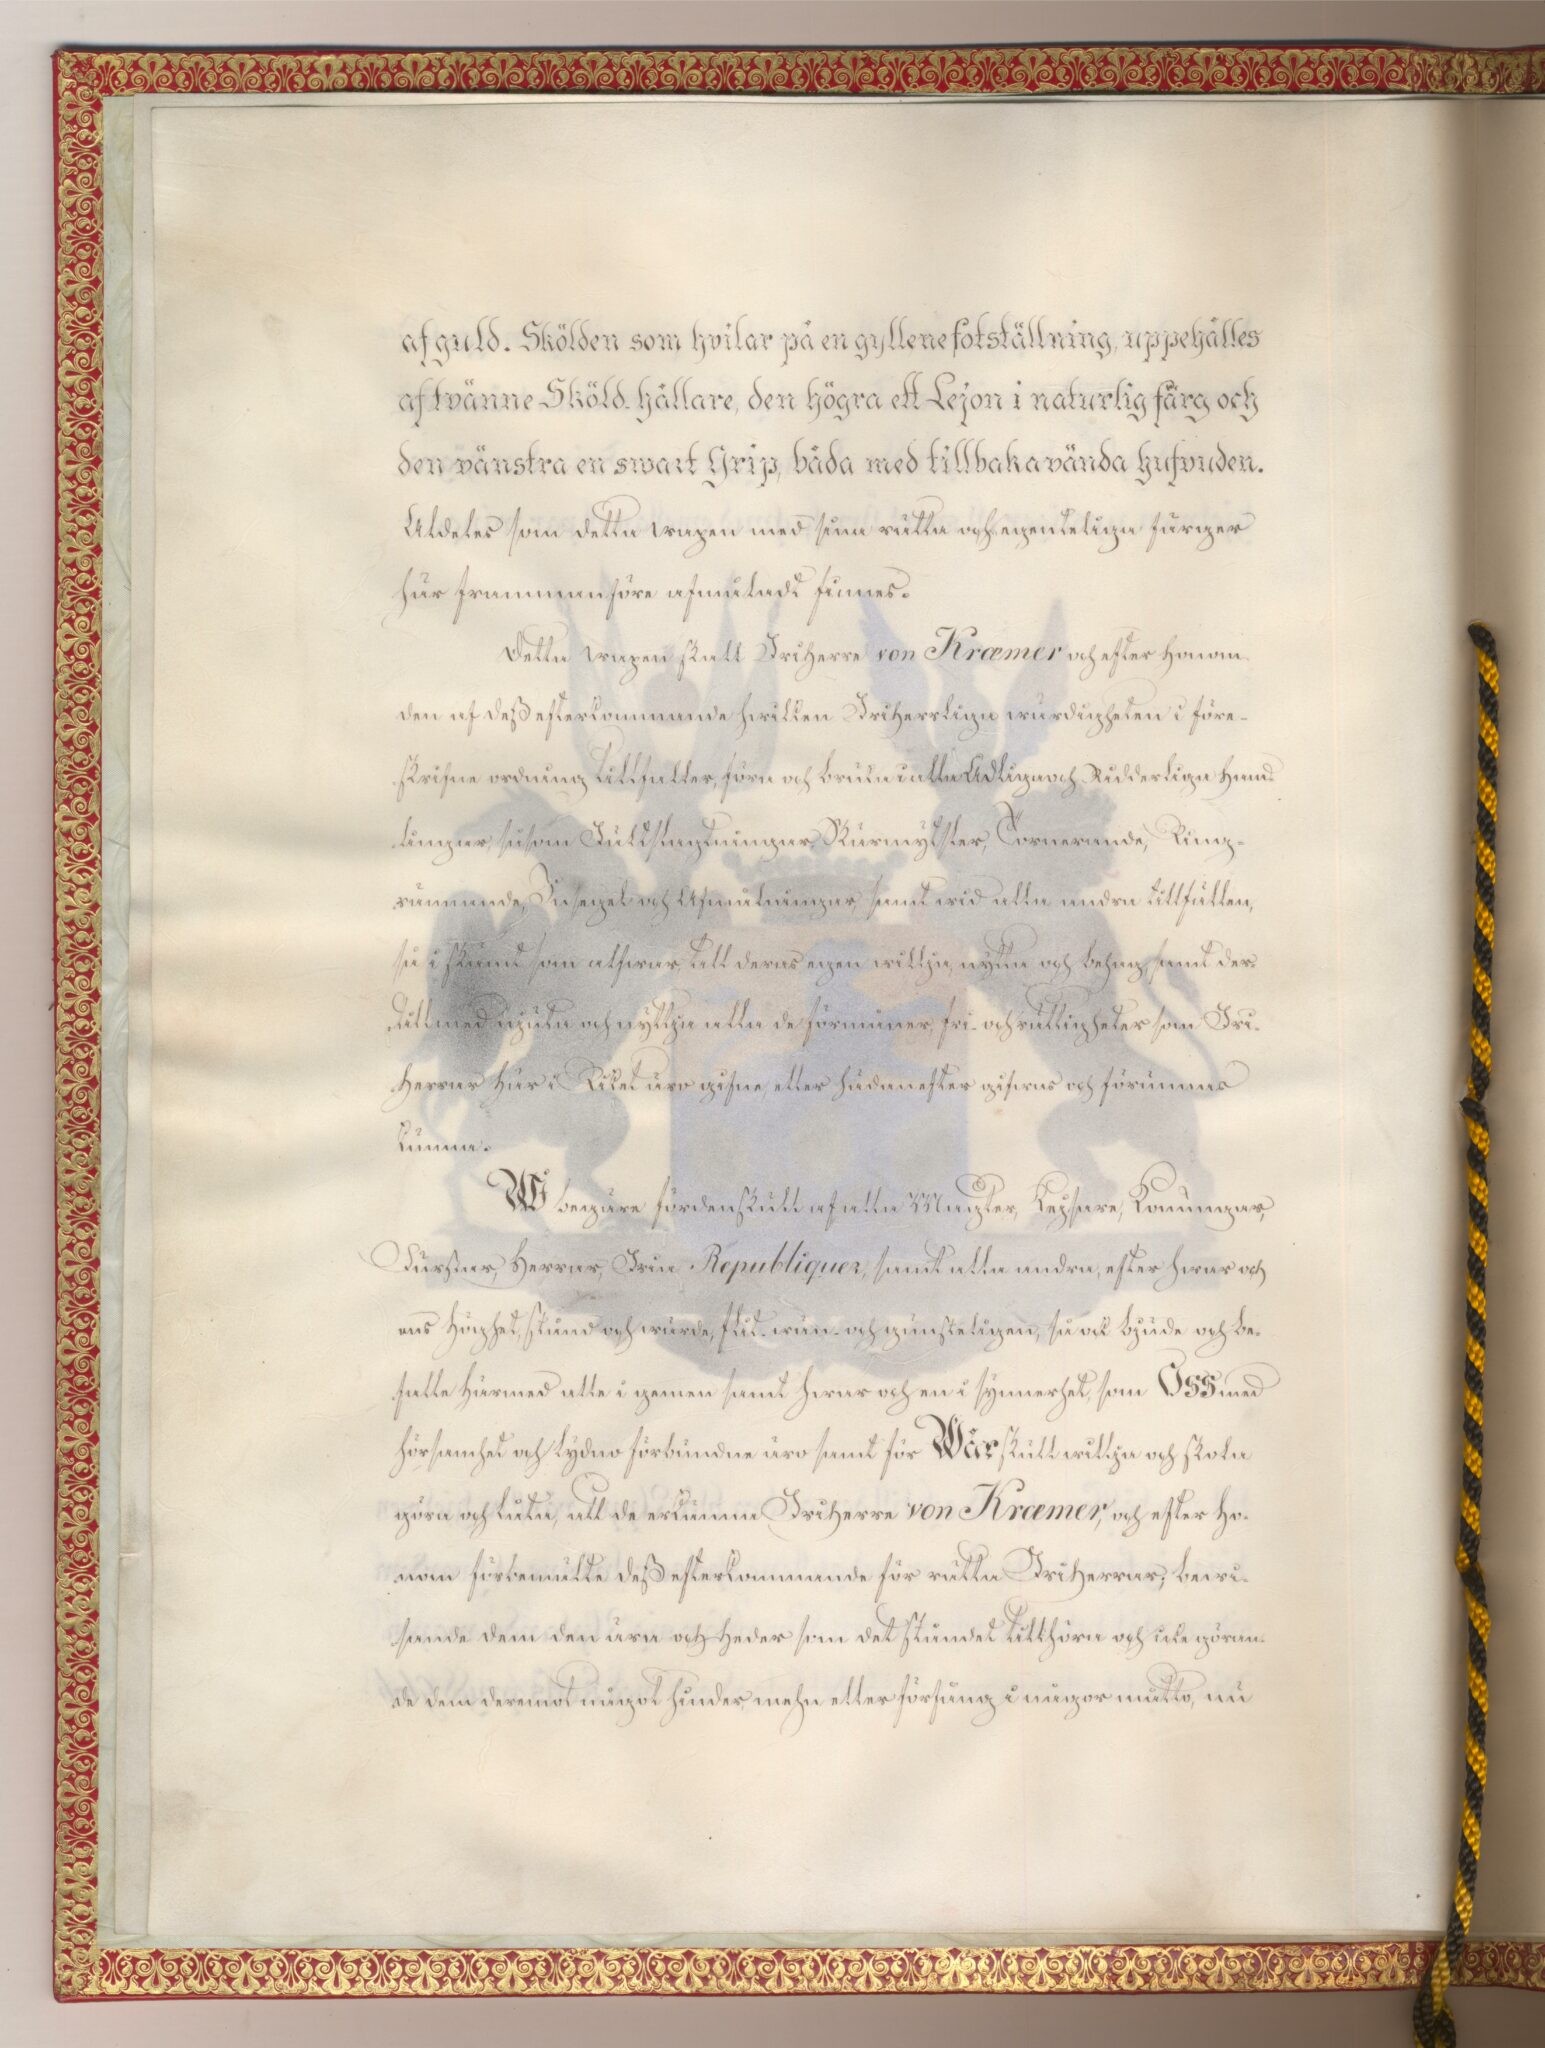 af guld. Skölden som hvilar på en gyllene fotställning, uppehålles
af tvänne Sköld-hållare, den högra ett Lejon i naturlig färg och
den vänstra en swart Grip, båda med tillbakavända hufvuden.
Aldeles som detta wapen med sina rätta och egenteliga färger
här frammanföre afmåladt finnes.
Detta wapen skall FriHerre von Kræmer och efter Honom
den af deß efterkommande hwilken FriHerrliga wärdigheten i före-
skrifne ordning tillfaller, föra och bruka i alla Adliga och Ridderliga Hand-
lingar, såsom Fältslagtningar, Skärmytsler, Tornerande, Ring-
rännande, Insegel och Afmålningar, samt wid alla andra tillfällen,
så i skämt som alfwar, till deras egen willja, nytta och behag, samt der-
till med njuta och nyttja alla de förmåner, fri- och rättigheter som Fri-
Herrar Här i Riket äro gifne, eller hädanefter gifwas och förunnas
kunna.
Wi begäre fördenskull af alla Magter, Kejsare, Konungar,
Furstar, Herrar, Fria Republiquer, samt alla andra, efter hwar och
ens Höghet, stånd och wärde, flit- wän- och gunsteligen, så ock bjude och be-
falle Härmed alle i gemen samt hwar och en i synnerhet, som Oss med
hörsamhet och lydno förbundne äro samt för Wår skull willja och skola
göra och låta, att de erkänna FriHerre von Kræmer, och efter Ho-
nom förbemälte deß efterkommande för rätta FriHerrar; bewi-
sande dem den ära och Heder som det ståndet tillhöra och icke göran-
de dem deremot något hinder, mehn eller förfång i någor måtto, nu